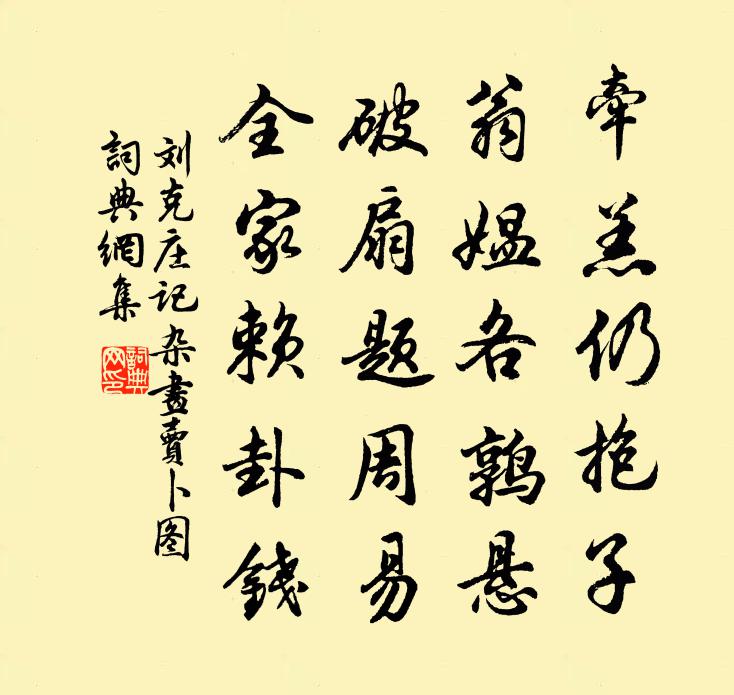 牵羔仍抱子
翁媪各鹑悬
破扇题周易
全家赖卦錢
刘克庄记杂畫賣卜图
詞典網集
詞典网印